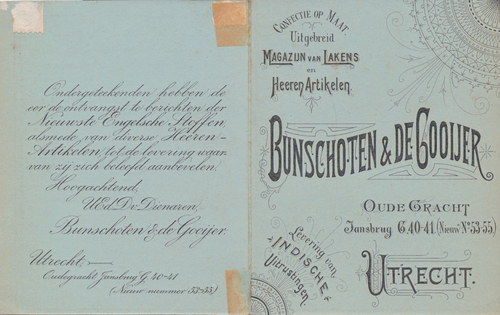 Ondergeteekenden hebben de
eer de ontvangst te berichten der
Nieuwste Engelsche Stoffen,
alsmede van diverse Heeren-
Artikelen, tot de levering waar-
van zij zich beleefd aanbevelen.
Hoogachtend,
UEd. Dv. Dienaren,
Bunschoten & de Gooijer.
Utrecht.
Oudegracht Jansbrug G. 40-41
(Nieuw nummer 53-55)
Confectie op Maat.
Uitgebreid
Magazijn van Lakens
en
Heeren Artikelen.
Bunschoten & De Gooijer
Oude Gracht
Jansbrug G. 40-41. (Nieuw No. 53-55)
Levering van
Indische
Uitrustingen.
Utrecht.